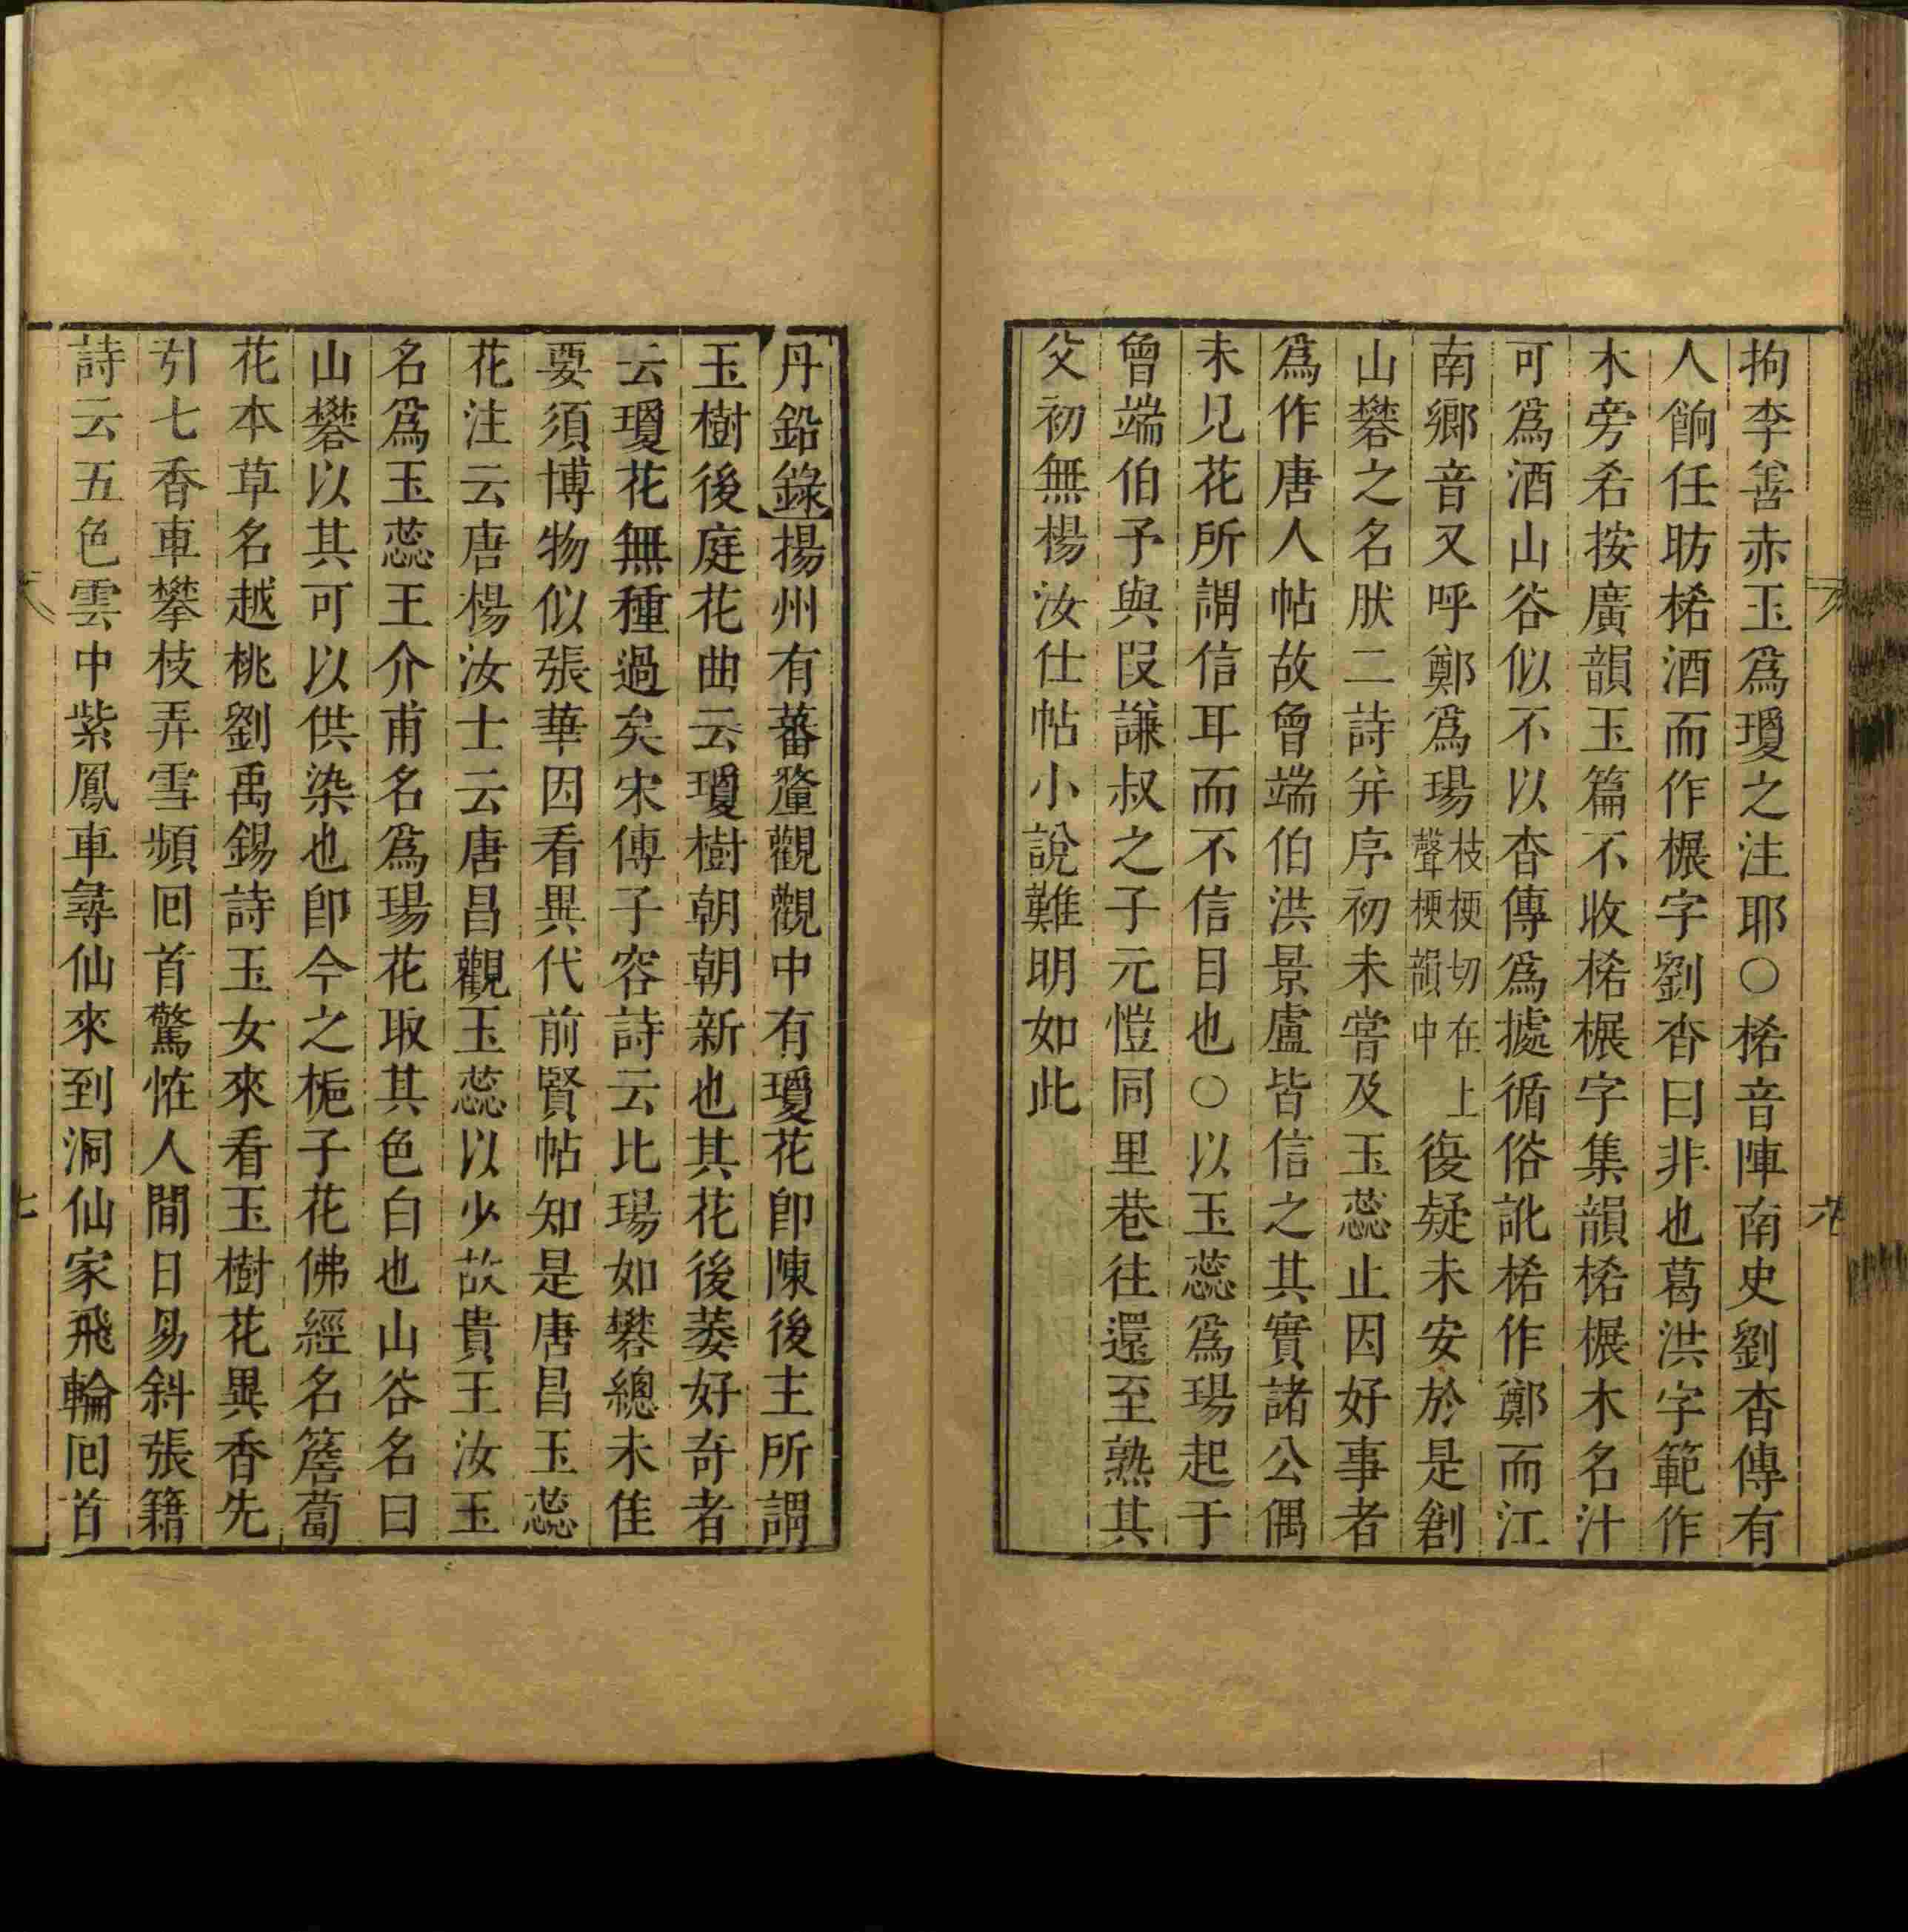 拘李善赤玉爲瓊之注耶○桰音陣南史劉杳傳有
人餉任昉桰酒而作榐字劉杳曰非也葛洪字範作
木旁右按廣韻玉篇不收桰榐字集韻桰榐木名汁
可爲酒山谷似不以杳傳爲據循俗訛桰作鄭而江
南鄉音又呼鄭爲瑒枝梗切在上聲梗韻中復疑未安於是創
山礬之名肰二詩并序初未嘗及玉蕊止因好事者
爲作唐人帖故曾端伯洪景盧皆信之其實諸公偶
未見花所謂信耳而不信目也○以玉蕊爲瑒起于
曾端伯予與段謙叔之子元愷同里巷往還至熟其
父初無楊汝仕帖小說難明如此
六
丹鉛錄揚州有蕃釐觀觀中有瓊花卽陳後主所謂
玉樹後庭花曲云瓊樹朝朝新也其花後萎好奇者
云瓊花無種過矣宋傅子容詩云比瑒如礬總未佳
要須博物似張華因看異代前賢帖知是唐昌玉蕊
花注云唐楊汝士云唐昌觀玉蕊以少故貴王汝玉
名爲玉蕊王介甫名爲瑒花取其色白也山谷名曰
山礬以其可以供染也卽今之梔子花佛經名簷蔔
花本草名越桃劉禹錫詩玉女來看玉樹花異香先
引七香車攀枝弄雪頻囘首驚恠人間日易斜張籍
詩云五色雲中紫鳳車尋仙來到洞仙家飛輪囘首
七